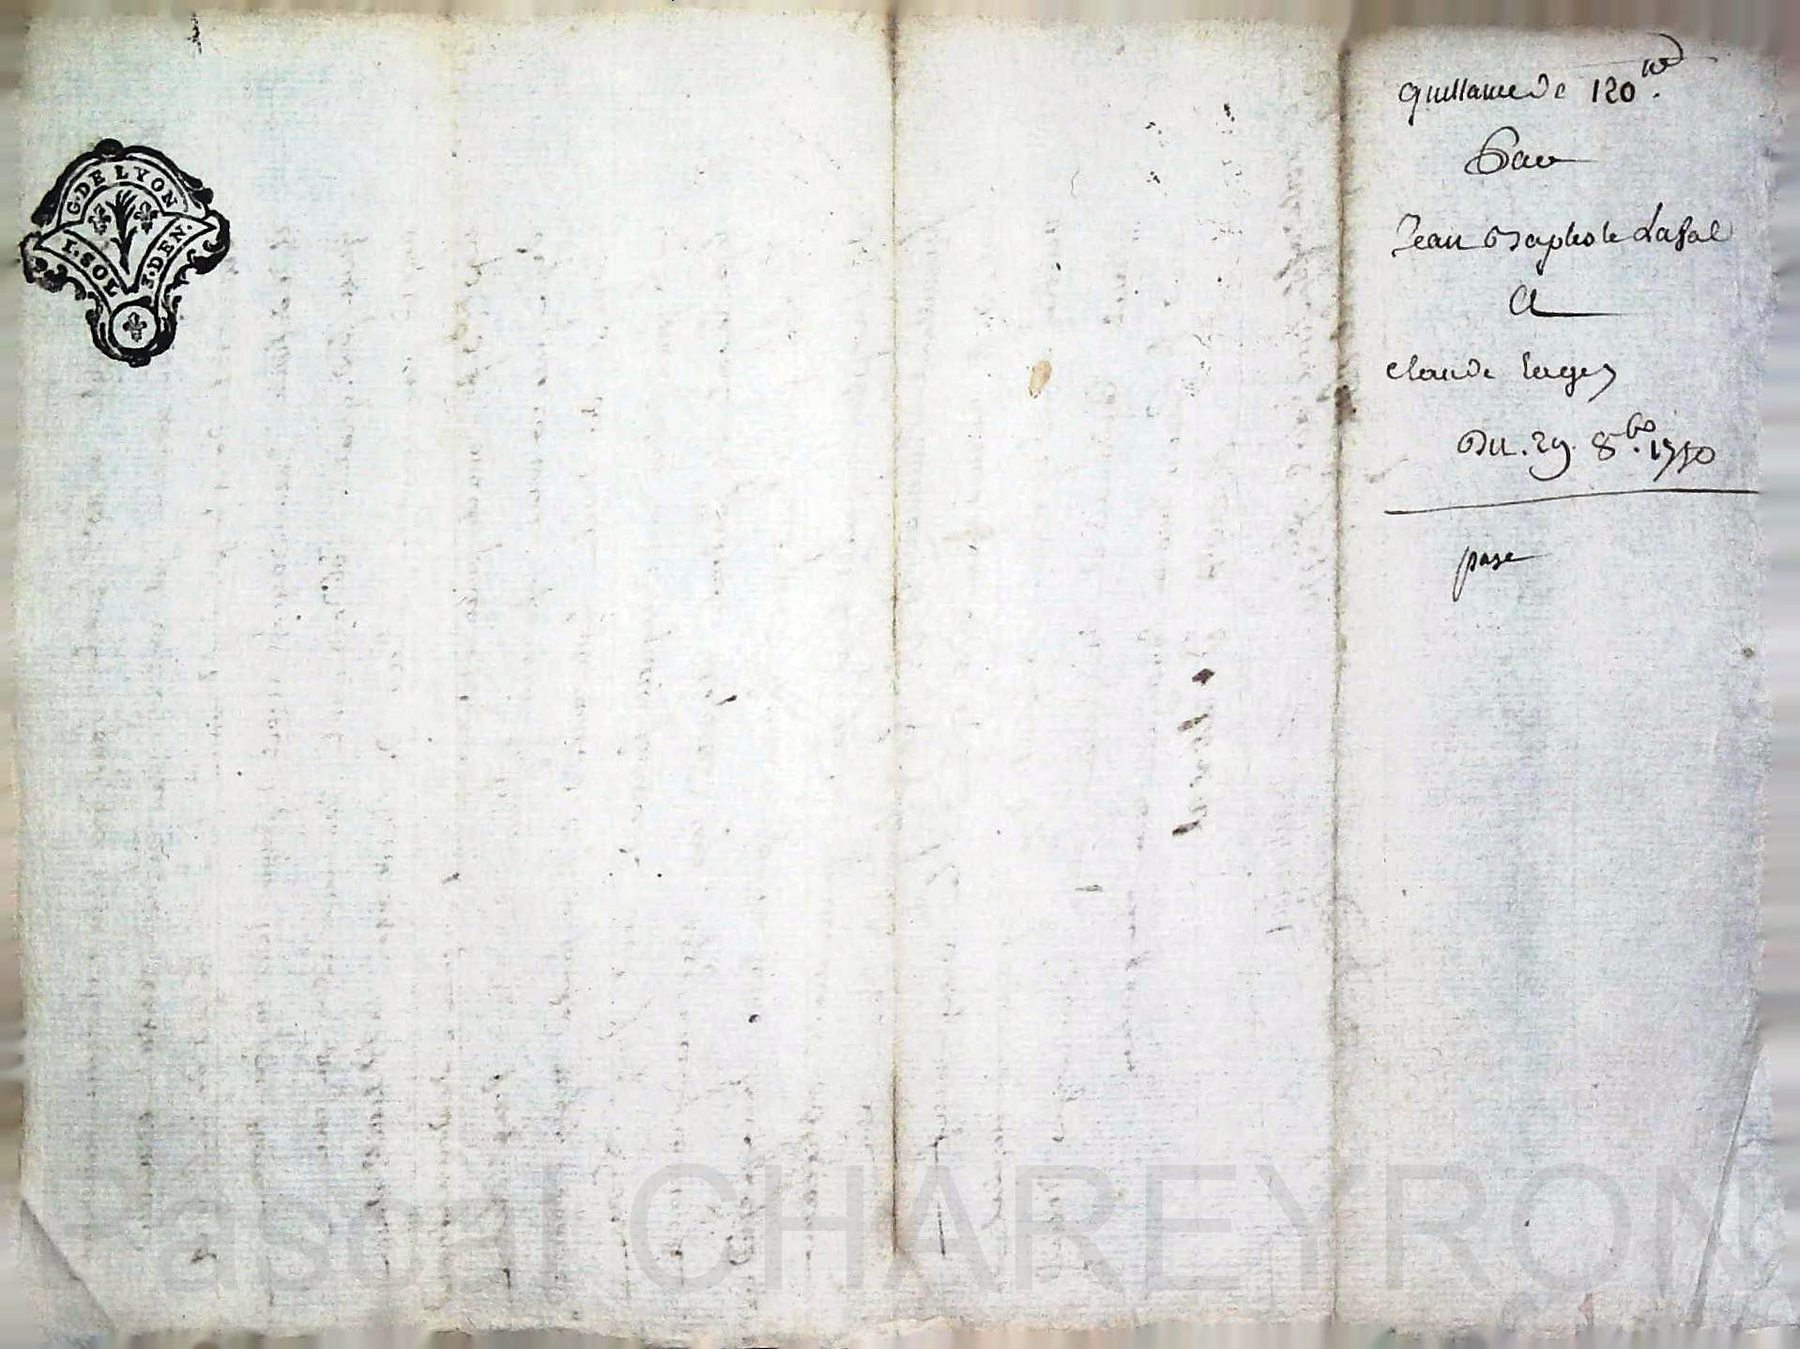 G. DE LYON
1. SOL 5. DEN.
quittance de 120
Par
Jean Baptiste Lafal
A
claude
Du. 29. 8bre. 1750
paye
Pascal CHAREYRON